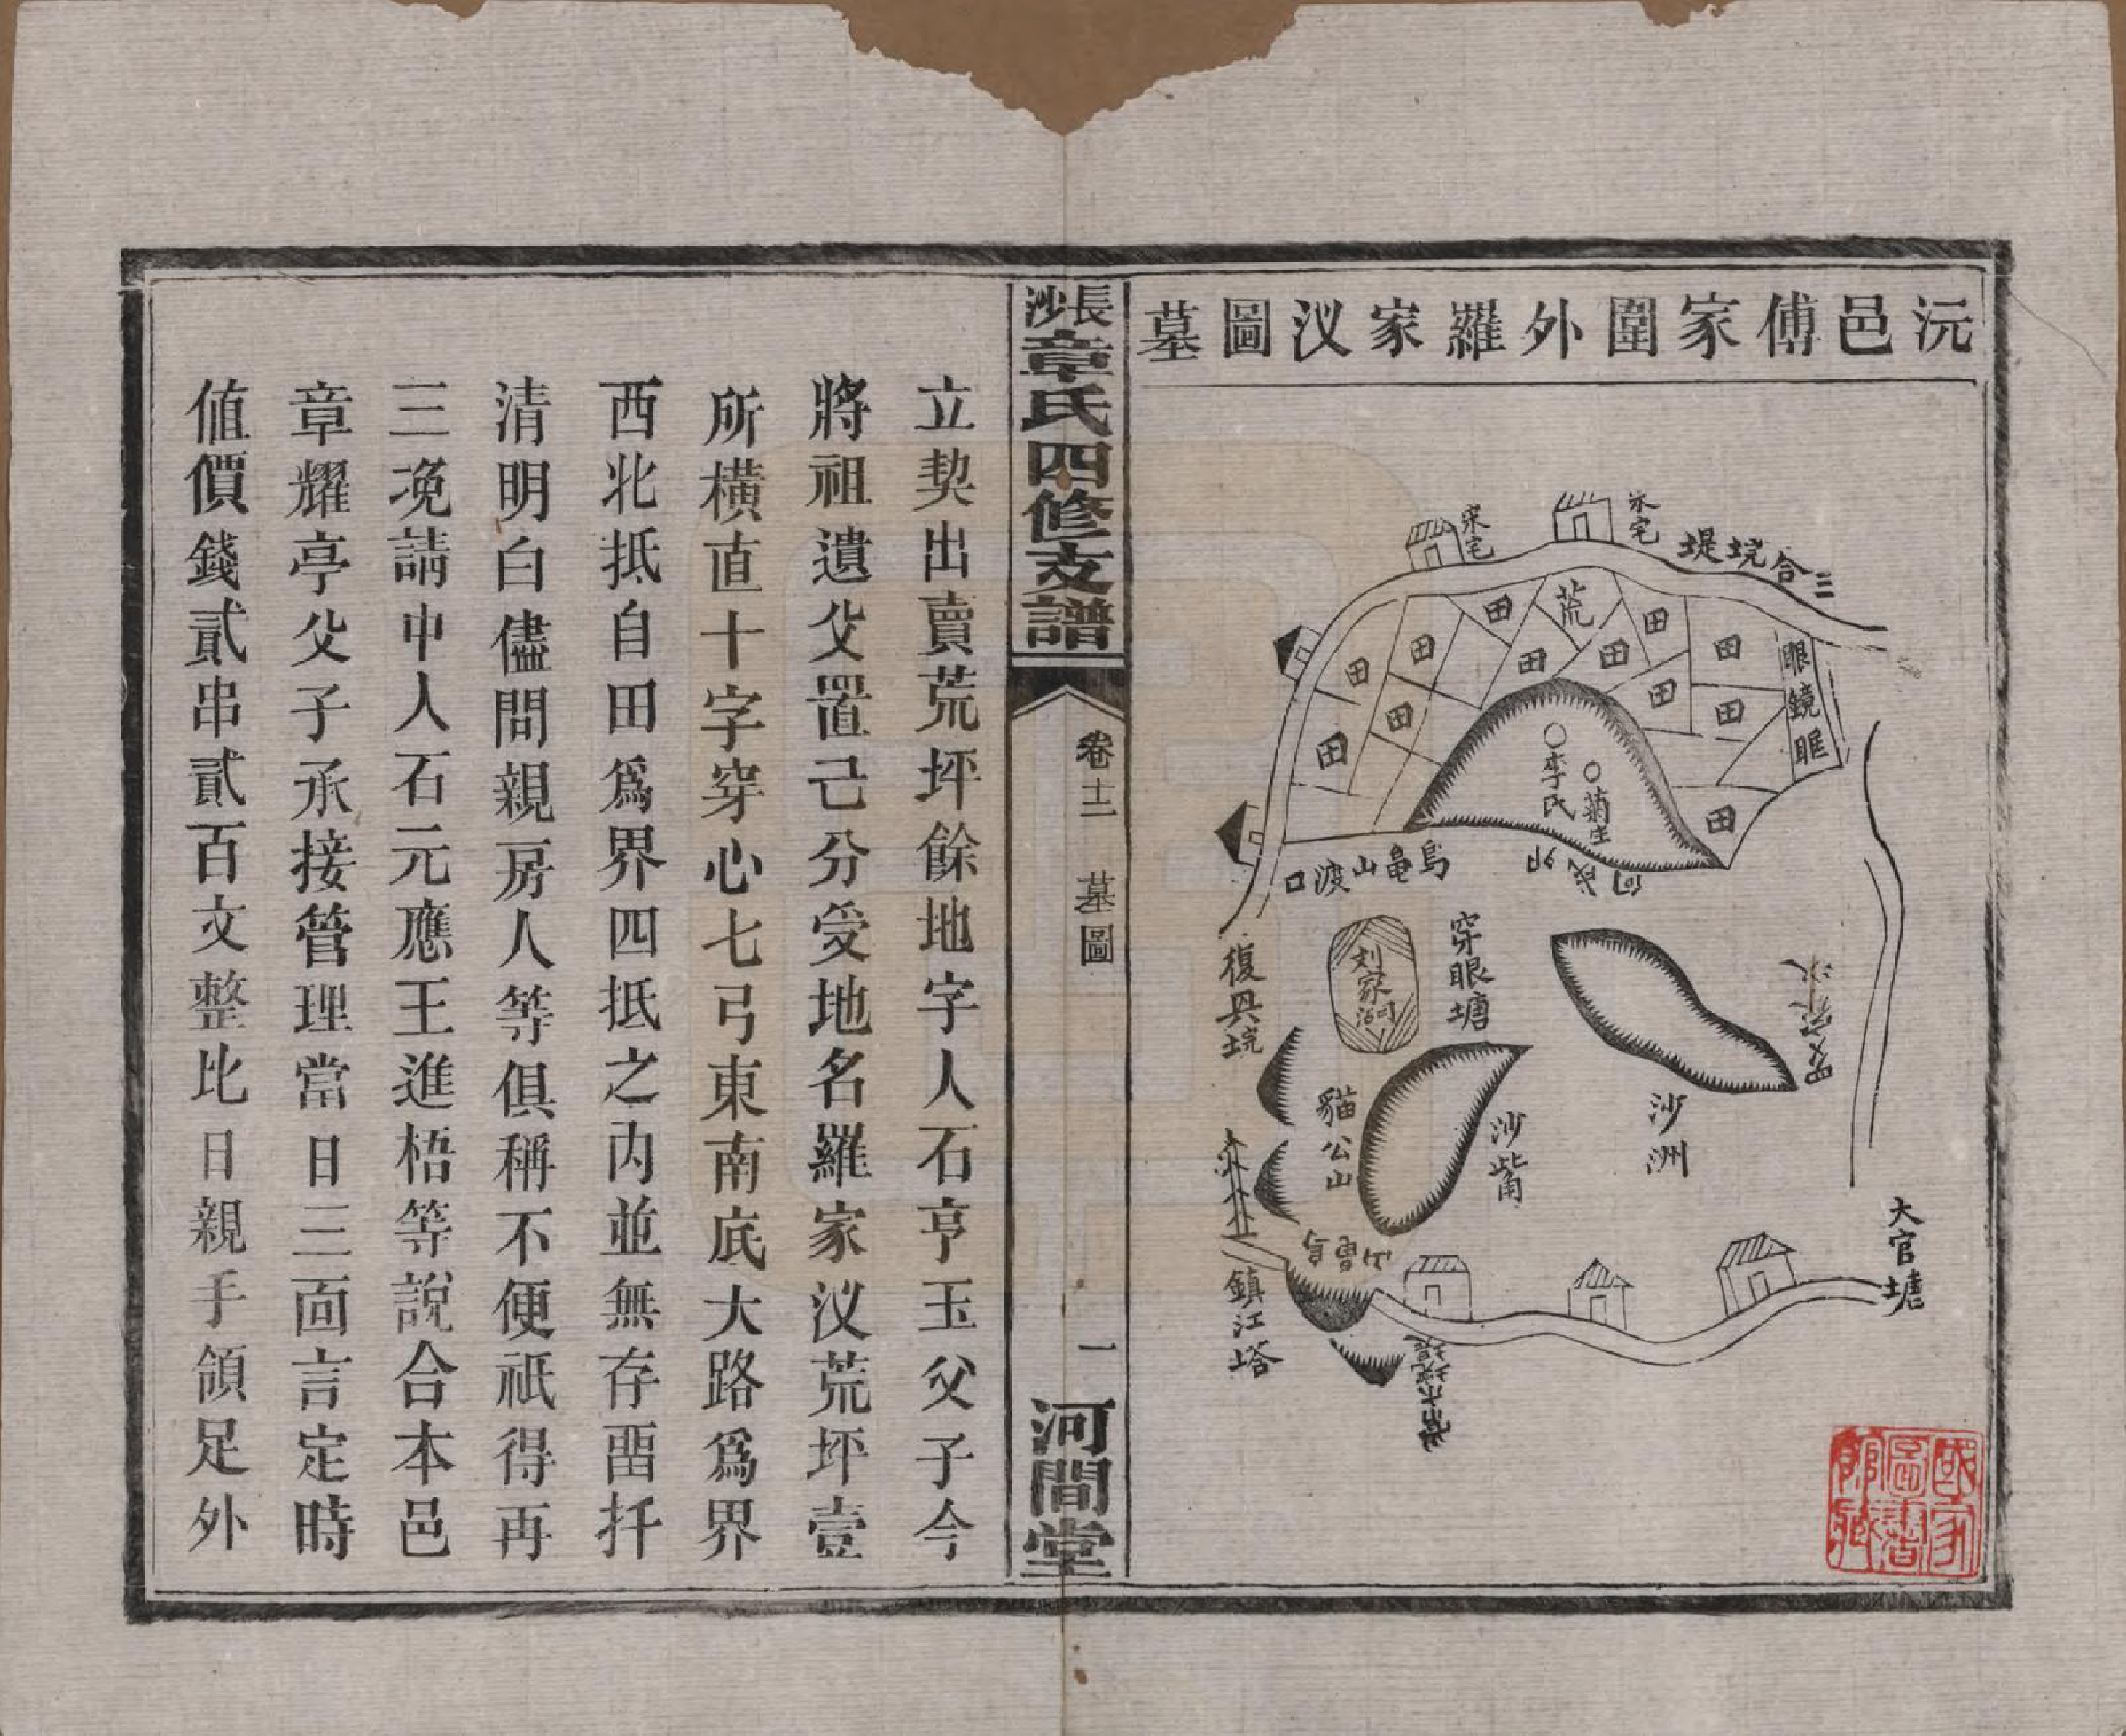 沅邑傅家圍外羅家汊圖墓
宋宅
宋宅
三合垸堤
荒
田
田
田
田
田
田
田
田
田
田
田
田
田
眼鏡眶
李氏
菊生
烏龜山渡口
向戌卯
復興垸
刘家河
穿眼塘
貓公山
沙嘴
沙洲
大官塘
鎮江塔
長沙章氏四修支譜
卷十二
墓圖
一
河間堂
立契出賣荒坪餘地字人石亨玉父子今
將祖遺父置己分受地名羅家汊荒坪壹
所橫直十字穿心七弓東南底大路爲界
西北抵自田爲界四抵之內並無存畱扦
清明白儘問親房人等俱稱不便祇得再
三浼請中人石元應王進梧等說合本邑
章耀亭父子承接管理當日三面言定時
値價錢貳串貳百文整比日親手領足外
國家圖書館藏